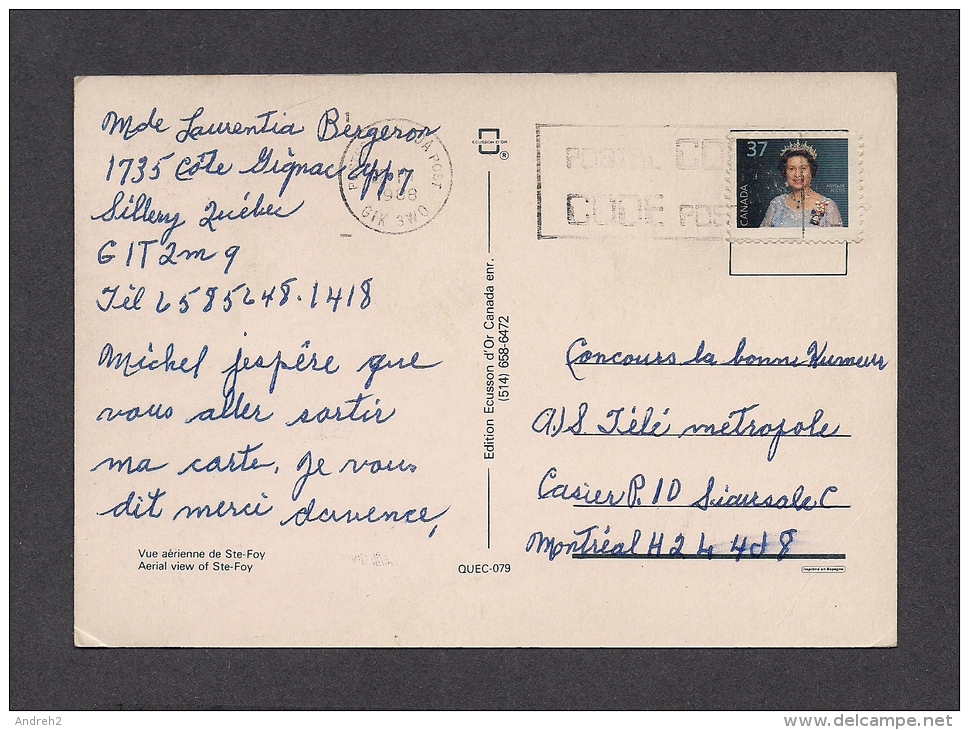 Mde Laurentia Bergeron
1735 Côte Gignac App 7
Sillery Québec
G1T2m9
Tél 6585648.1418
Michel jespére que
vous aller sortir
ma carte, Je vous
dit merci davence,
Vue aérienne de Ste-Foy
Aerial view of Ste-Foy
QUEC-079
ECUSSON D'OR
®
Edition Ecusson d'Or Canada enr.
(514) 658-6472
POST
1988
G1K 3W0
CODE
37
CANADA
Concours la bonne Humeur
A/S Télé métropole
Casier P. 10 Siursale C
Montréal H2L 4d8
Imprimé en Espagne
Andreh2
www.delcampe.net